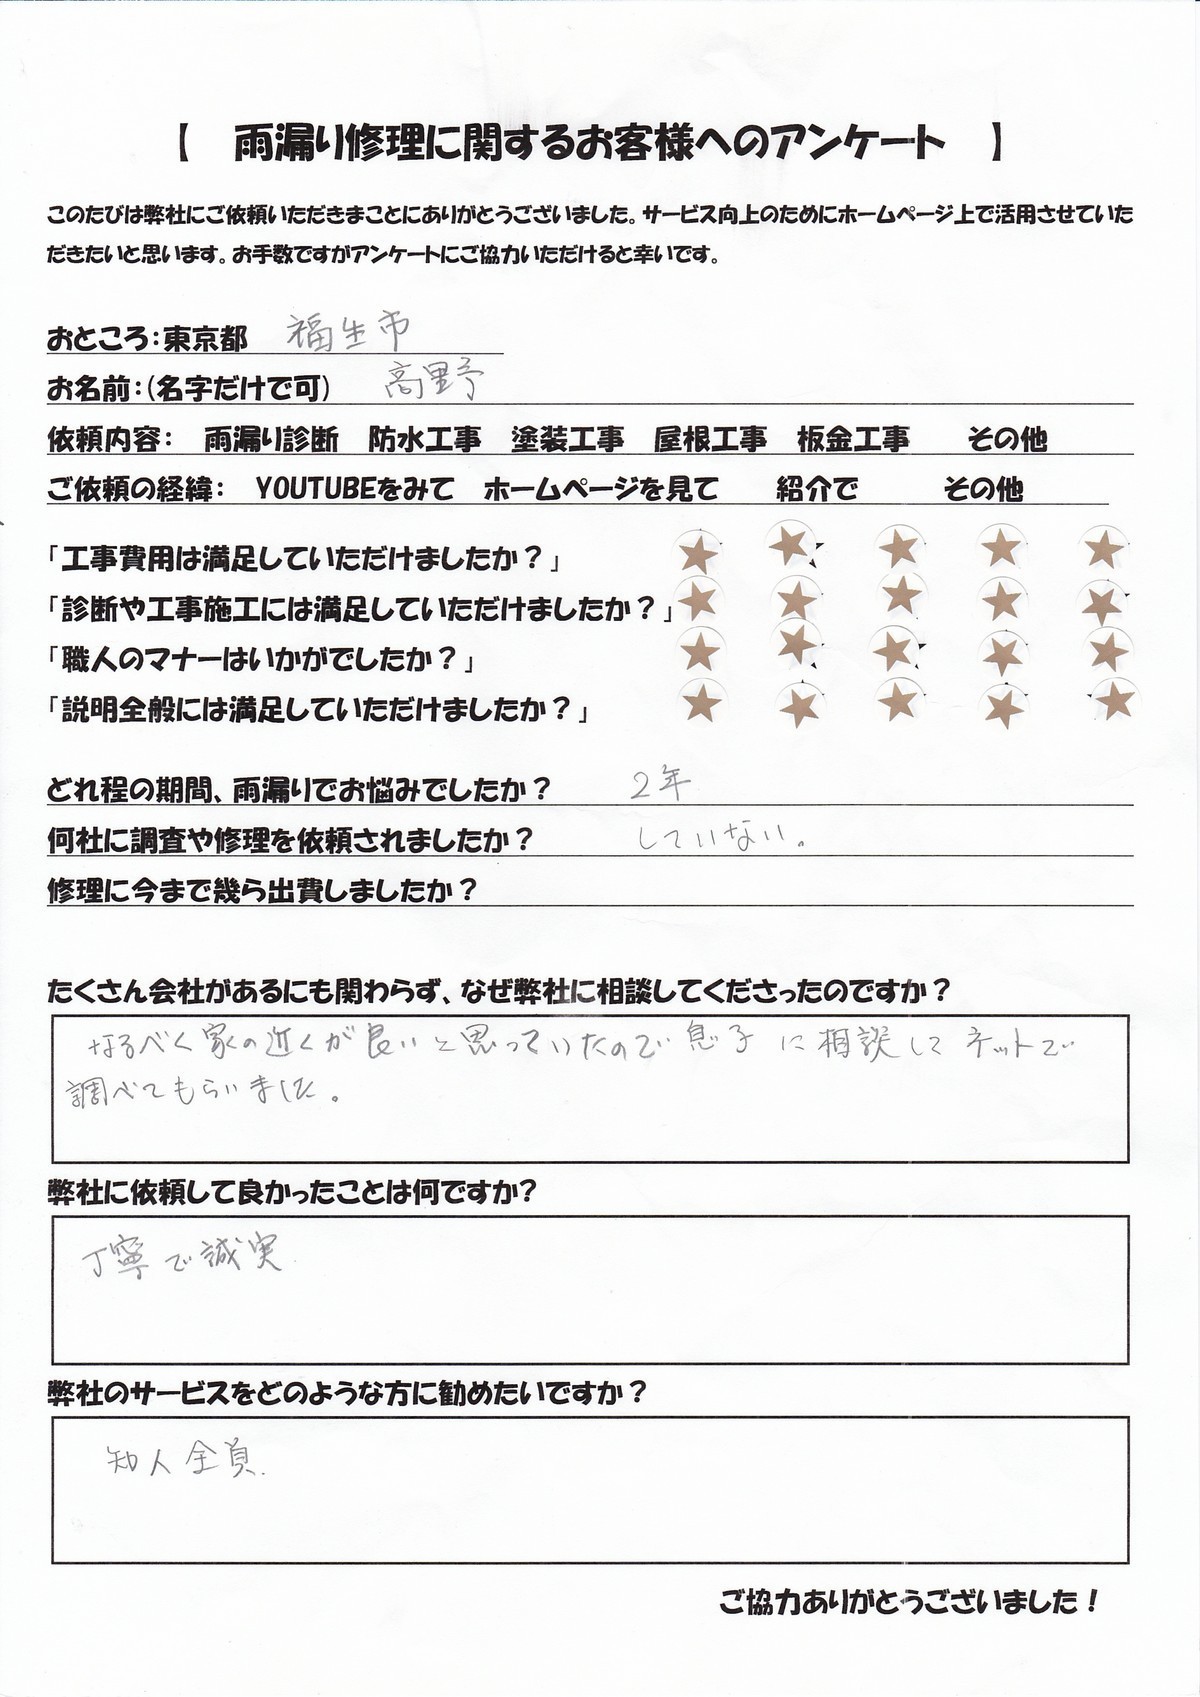 【 雨漏り修理に関するお客様へのアンケート 】
このたびは弊社にご依頼いただきまことにありがとうございました。サービス向上のためにホームページ上で活用させていた
だきたいと思います。お手数ですがアンケートにご協力いただけると幸いです。
おところ：東京都 福生市
お名前：（名字だけで可） 高野
依頼内容： 雨漏り診断 防水工事 塗装工事 屋根工事 板金工事 その他
ご依頼の経緯： YOUTUBEをみて ホームページを見て 紹介で その他
「工事費用は満足していただけましたか？」 ★ ★ ★ ★ ★
「診断や工事施工には満足していただけましたか？」 ★ ★ ★ ★ ★
「職人のマナーはいかがでしたか？」 ★ ★ ★ ★ ★
「説明全般には満足していただけましたか？」 ★ ★ ★ ★ ★
どれ程の期間、雨漏りでお悩みでしたか？ 2年
何社に調査や修理を依頼されましたか？ していない。
修理に今まで幾ら出費しましたか？
たくさん会社があるにも関わらず、なぜ弊社に相談してくださったのですか？
なるべく家の近くが良いと思っていたので息子に相談してネットで
調べてもらいました。
弊社に依頼して良かったことは何ですか？
丁寧で誠実
弊社のサービスをどのような方に勧めたいですか？
知人全員
ご協力ありがとうございました！